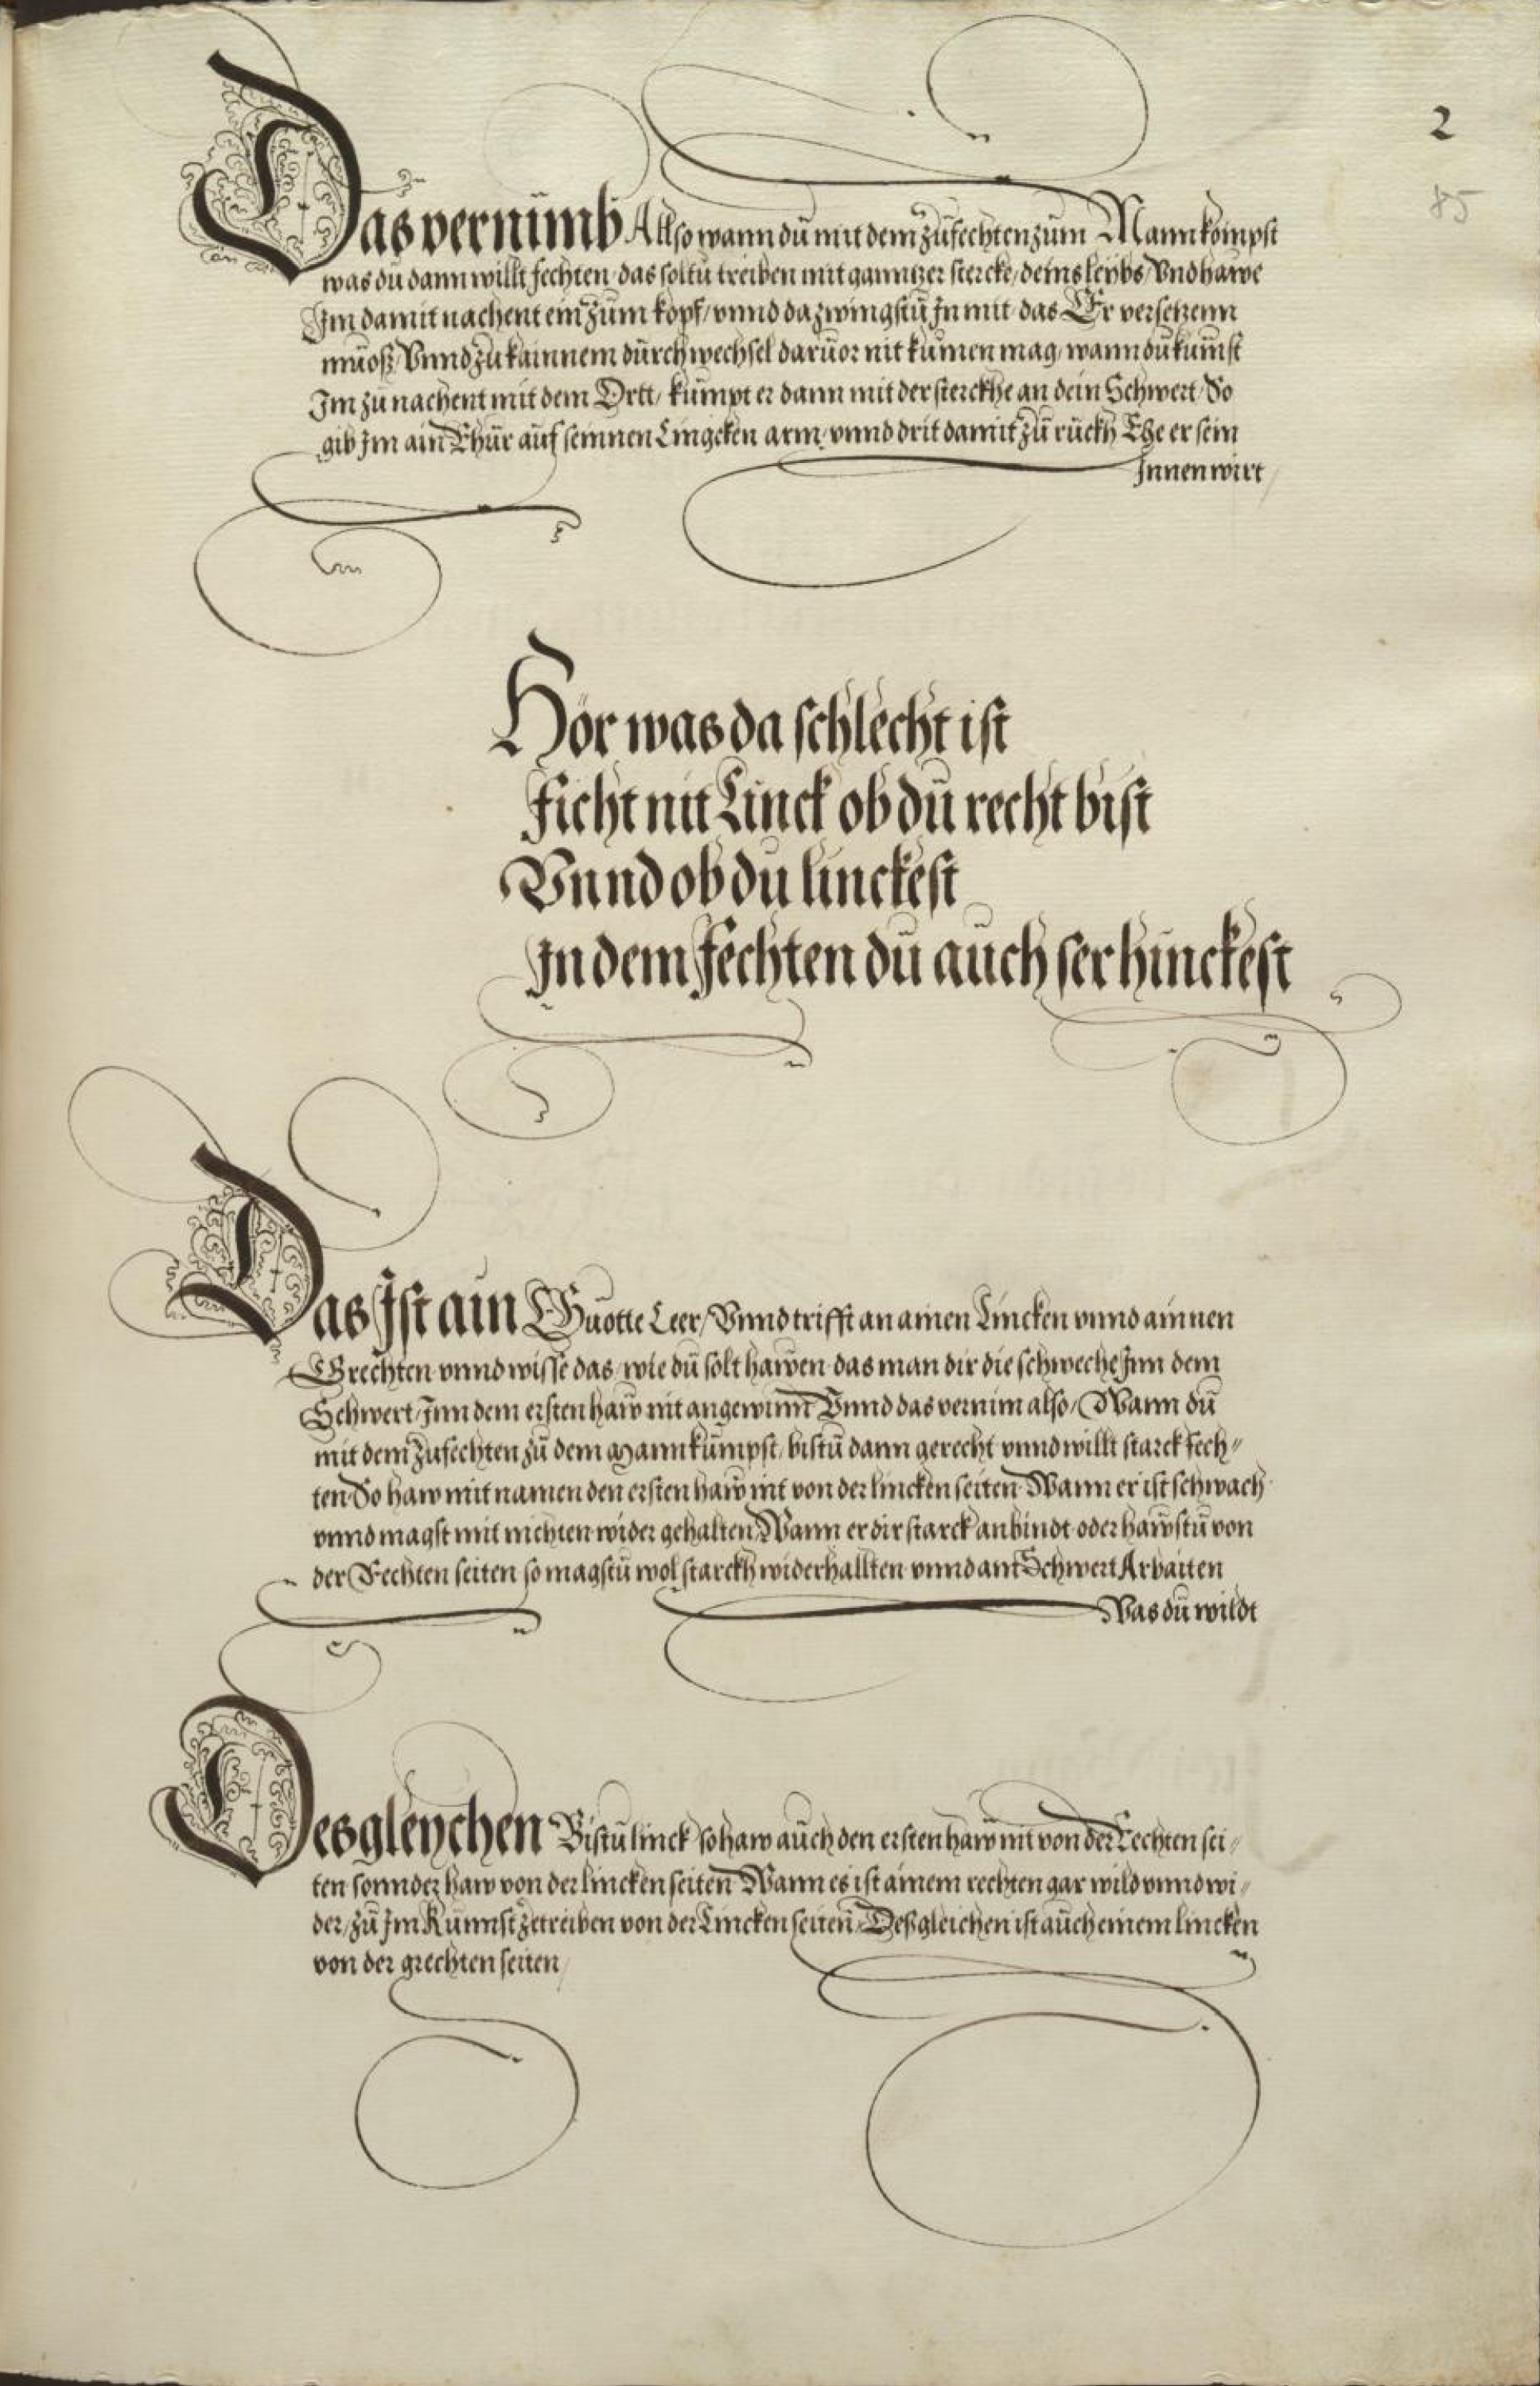 2
85
Das vernimb Allso wann dü mit dem züfechten züm Mann kompst
was dü dann willt fechten, das soltü treiben mit ganntzer stercke, deins leybs, Vnd hawe
Im damit nachent ein züm kopf, vnnd da zwingstü In mit, das Er versetzenn
müoß, Vnnd zu kainnem dürchwechsel darüor nit kumen mag, wann dü kümst
Im zu nachent mit dem Ortt, kümpt er dann mit der sterckhe an dein Schwert, So
gib Im ain Rhür aüf seinnen Lingcken arm, vnnd drit damit zü rückh Ehe er sein
Innen wirt,
Hör was da schlecht ist
Ficht nit Linck ob dü recht bist
Vnnd ob du linckest
In dem Fechten dü aüch ser hinckest
Das Ist ain Guotte Leer, Vnnd trifft an ainen Lincken vnnd ainnen
Grechten vnnd wisse das, wie dü solt hawen das man dir die schweche Inn dem
Schwert, Inn dem ersten haw nit angewinn Vnnd das vernim also, Wann dü
mit dem zufechten zü dem Mann kümpst, bistü dann gerecht vnnd willt starck fech-
ten So haw mit namen den ersten haw nit von der lincken seiten Wann er ist schwach
vnnd magst mit nichten wider gehalten, Wann er dir starck anbindt oder hawstü von
der Rechten seiten so magstü wol starckh widerhallten vnnd am Schwert Arbaiten
Was dü wildt
Desgleychen Bistü linck so haw aüch den ersten haw nit von der Rechten sei-
ten sonnder haw von der lincken seiten Wann es ist ainem rechten gar wild vnnd wi-
der, zü Im Künnst zetreiben von der Lincken seiten, Deßgleichen ist aüch einem lincken
von der grechten seiten,